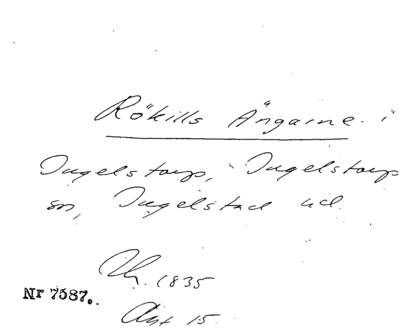 Rökills Ängarne i
Ingelstorp, Ingelstorps
sn, Ingelstad hd.
Th. 1835
Nr 7587.
Akt 15.